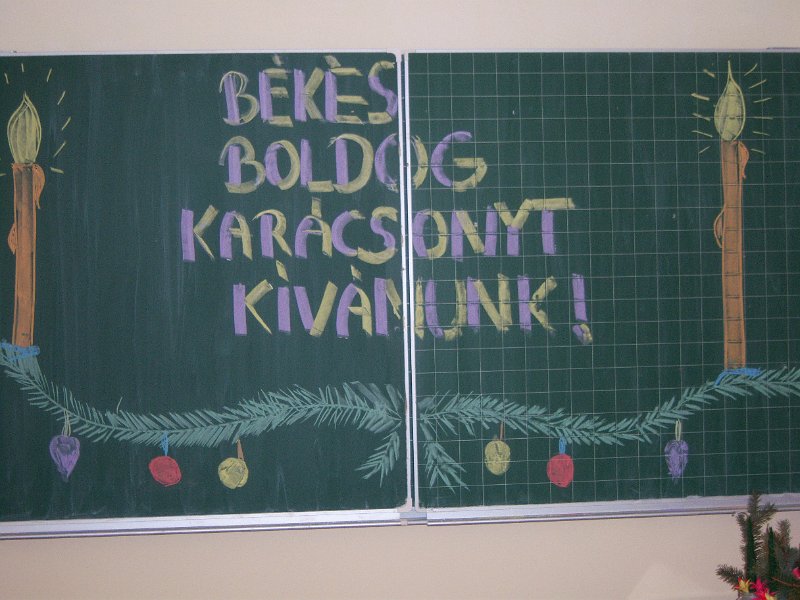 BÉKÉS
BOLDOG
KARÁCSONYT
KÍVÁNUNK!